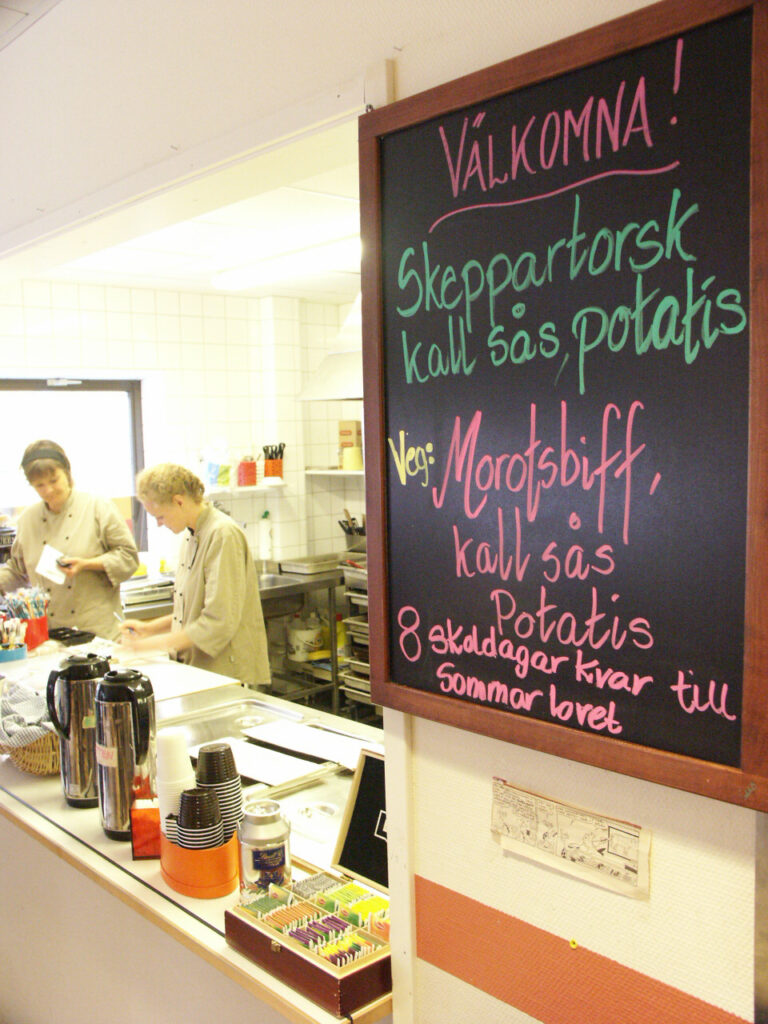 VÄLKOMNA!
Skeppartorsk
kall sås, potatis
Veg: Morotsbiff,
kall sås
Potatis
8 skoldagar kvar till
Sommar lovet